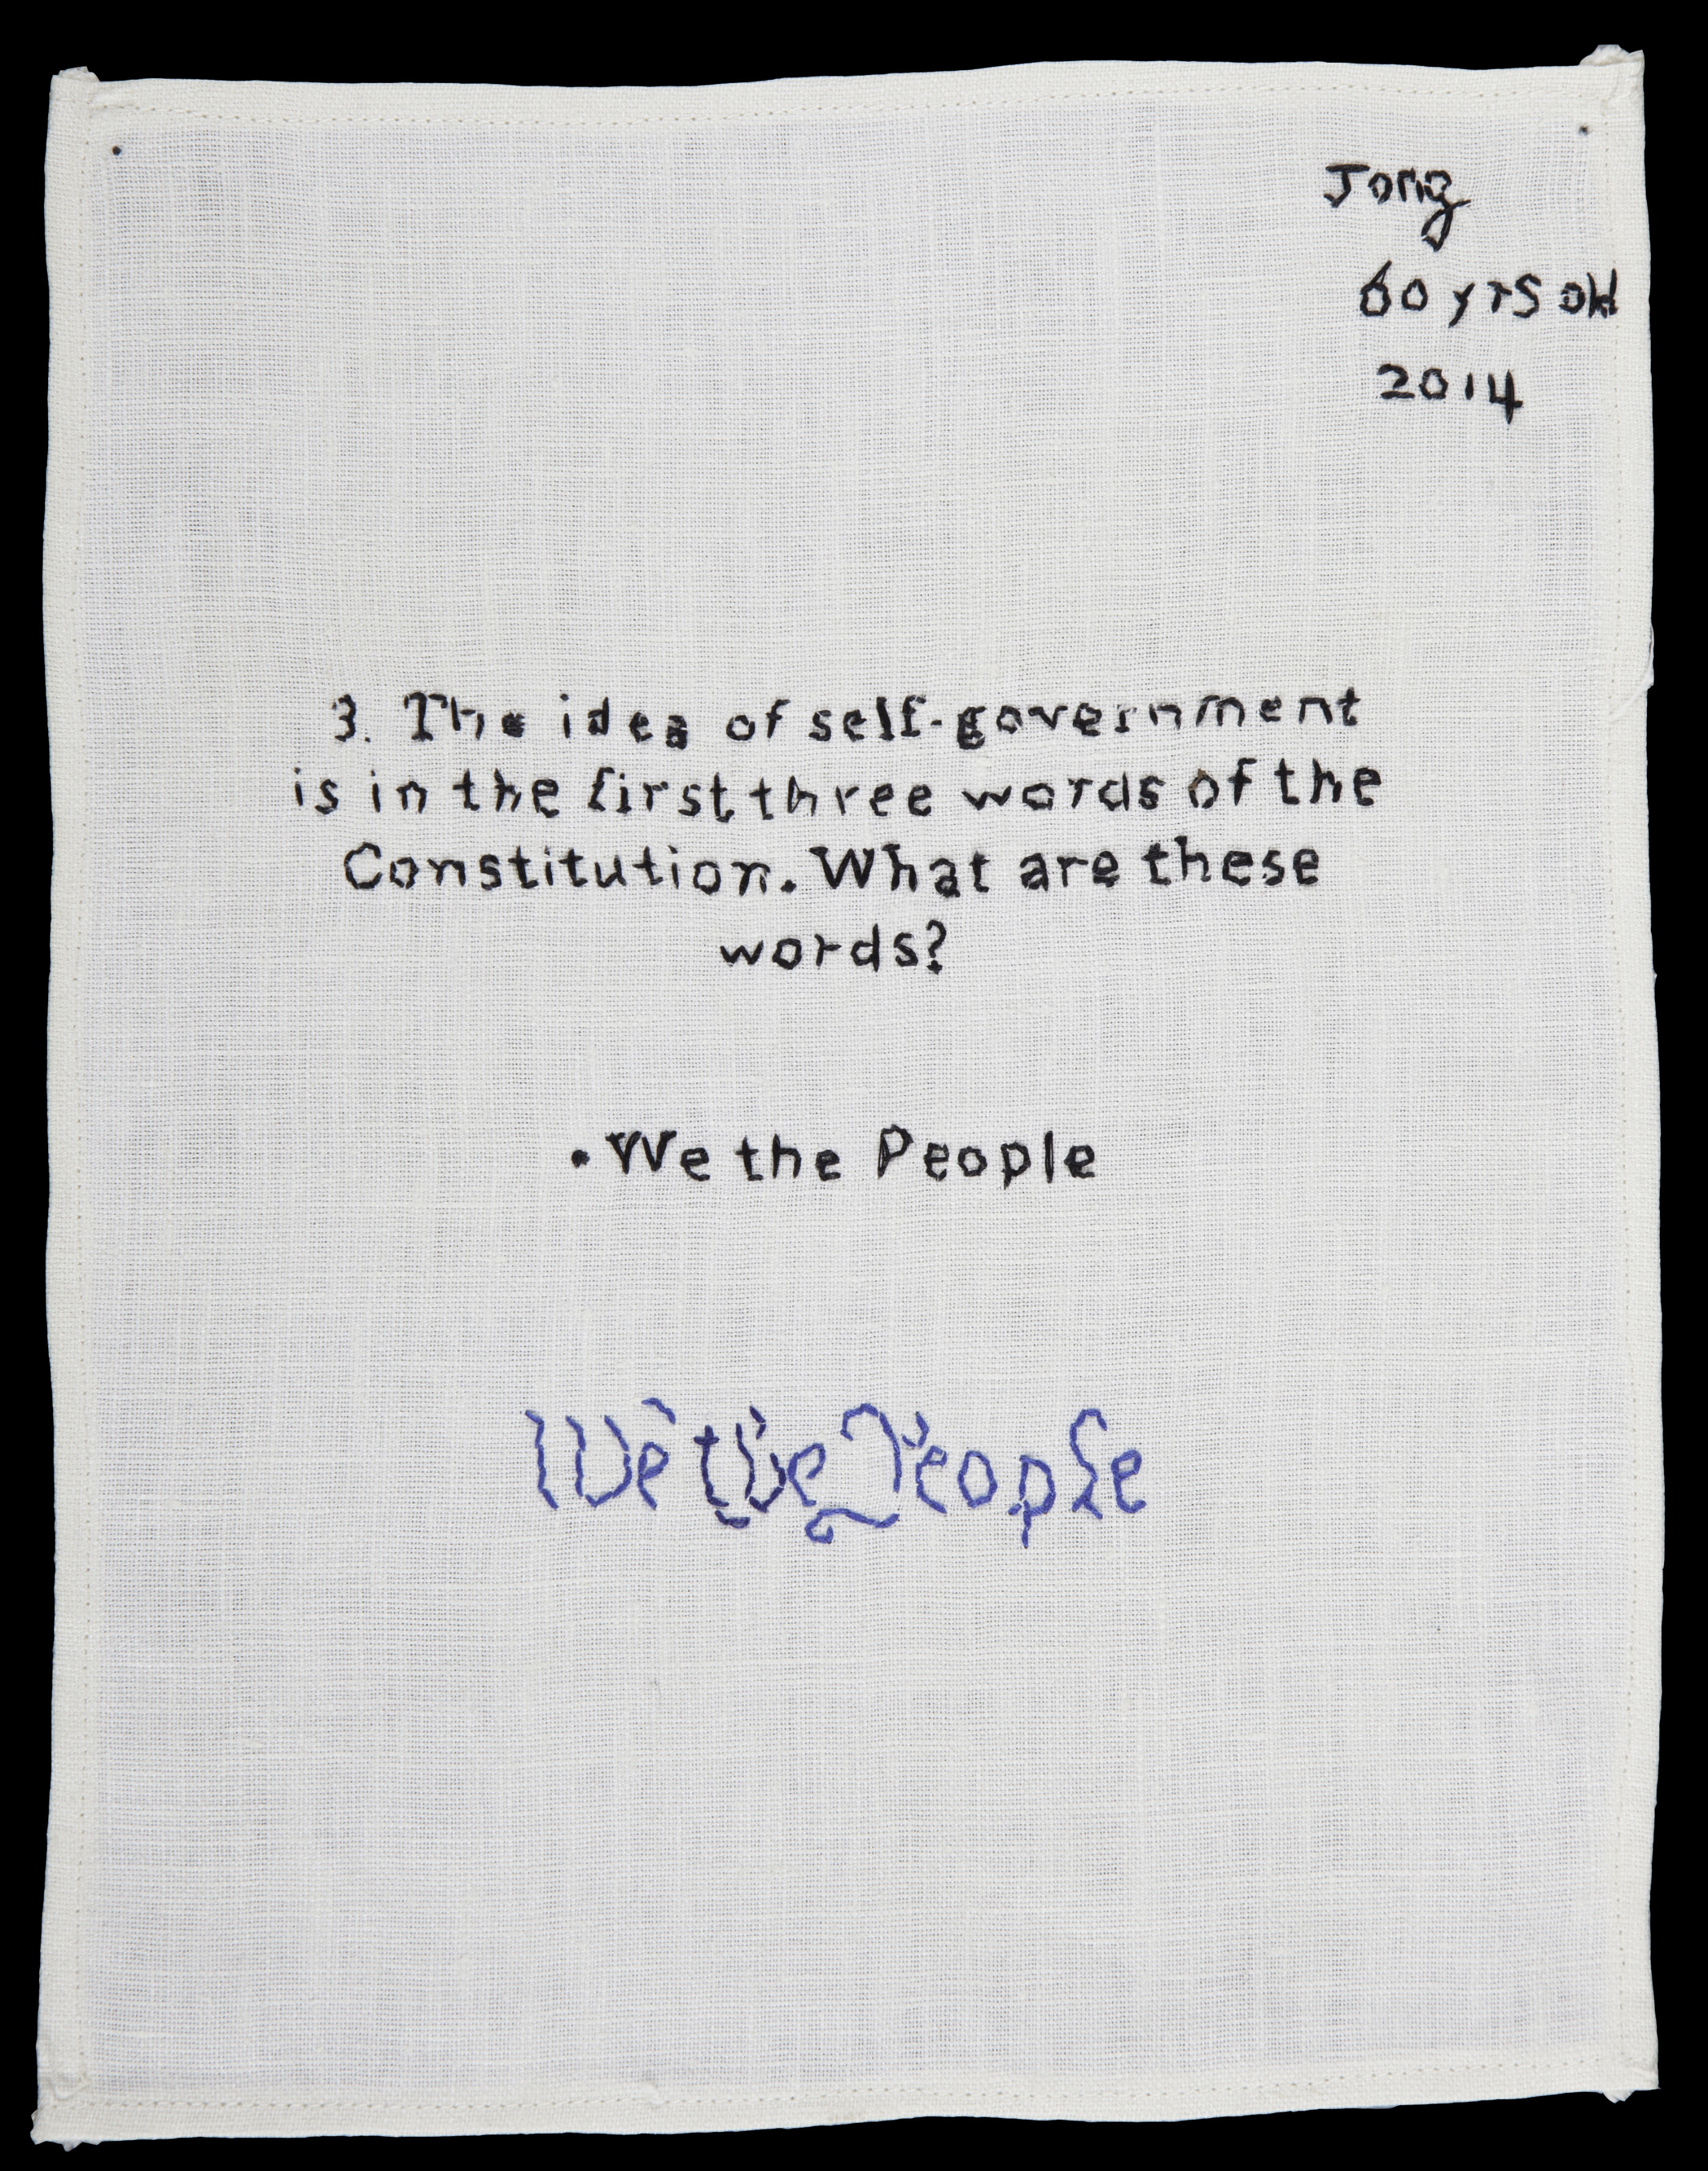 Jong
60 yrs old
2014
3. The idea of self-government
is in the first three words of the
Constitution. What are these
words?
• We the People
We the People